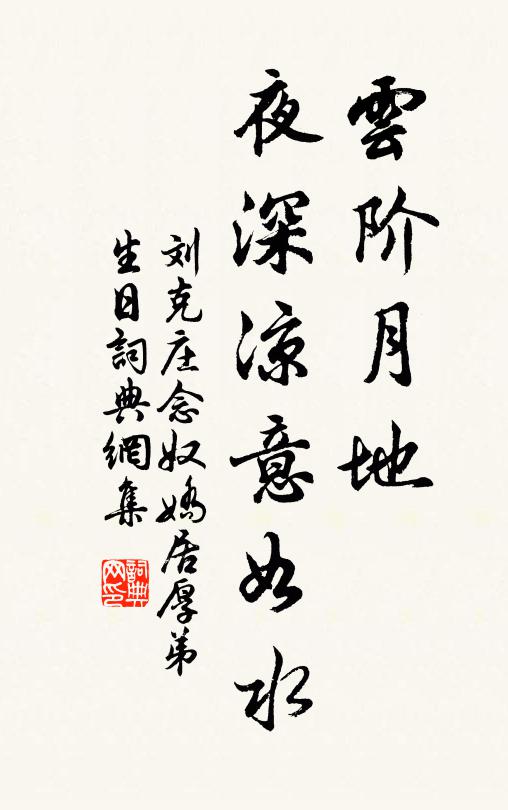 雲阶月地
夜深凉意如水
刘克庄念奴嬌居厚弟
生日詞典網集
詞典
网印